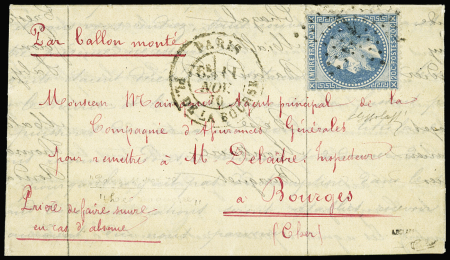 Par ballon monté
PARIS
PL. DE LA BOURSE
NOV.
70
EMPIRE FRANÇAIS
Monsieur principal de la
Compagnie d'Assurances Générales
pour remettre à M Delaitre, Inspecteur
à Bourges
(Cher)
Prière de faire suivre
en cas d'absence